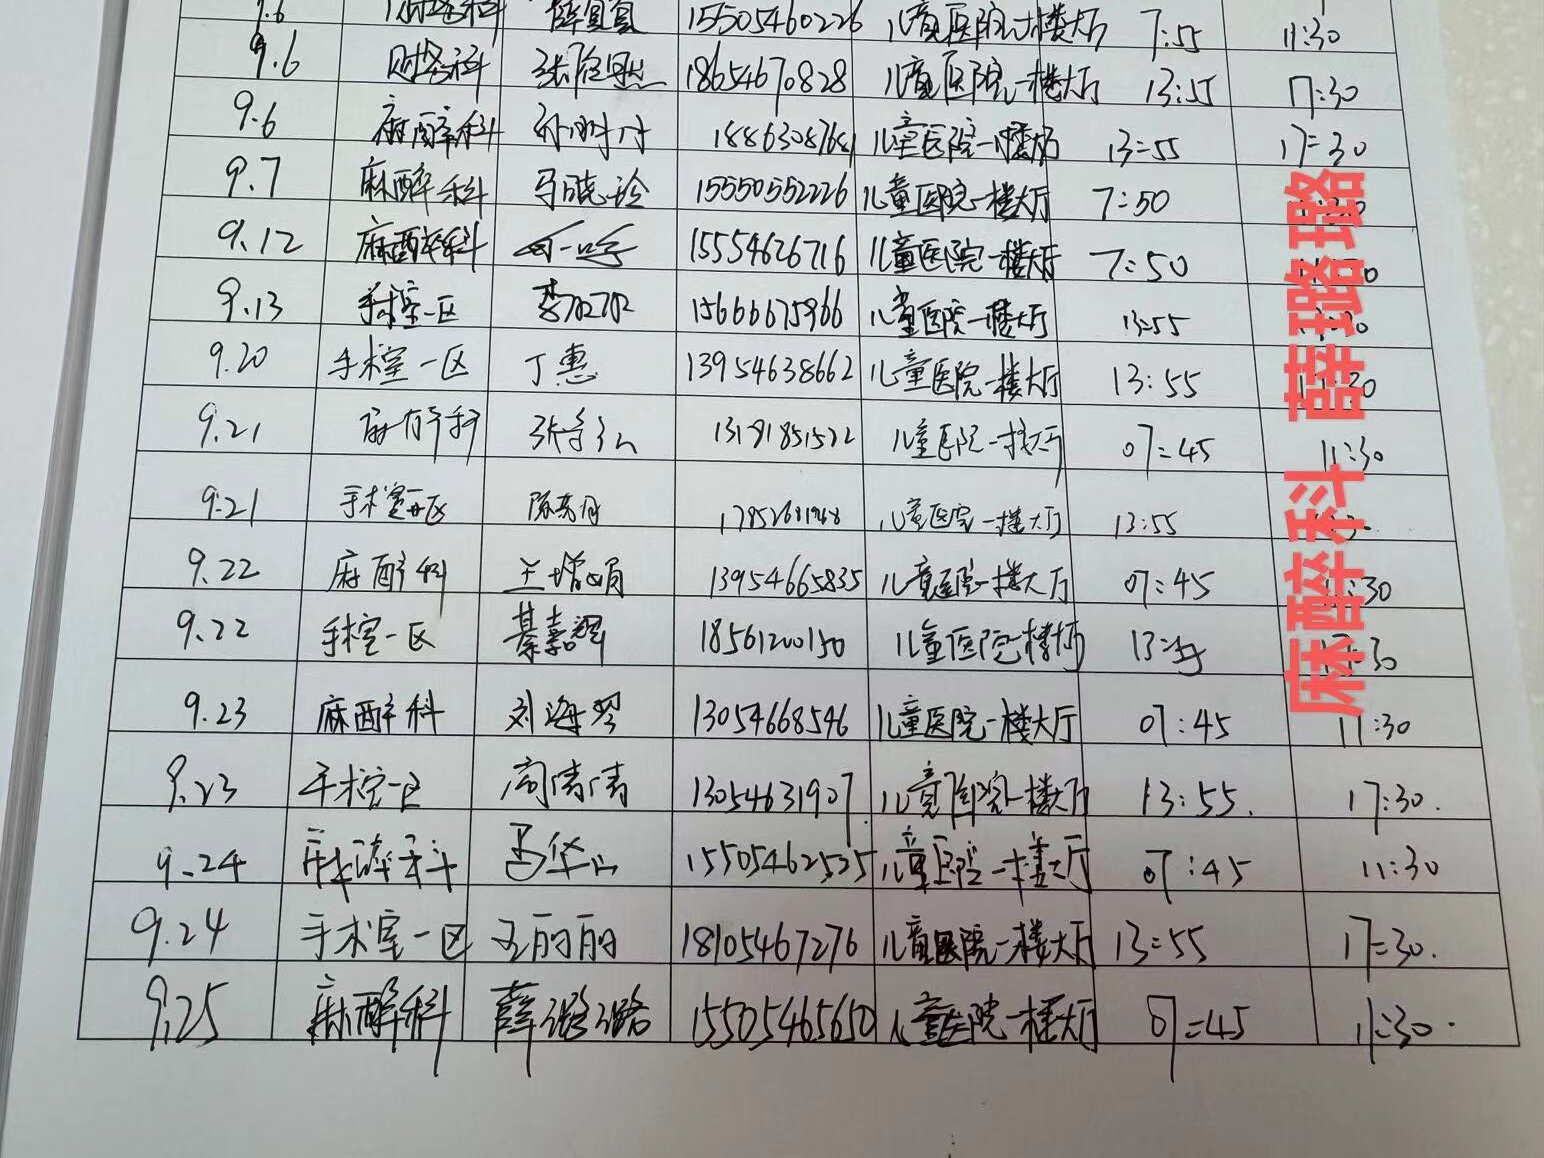 9.6 财务科 15505460226 儿童医院一楼大厅 7:55 11:30
9.6 财务科 18654670828 儿童医院一楼大厅 13:55 17:30
9.6 麻醉科 18863087681 儿童医院一楼大厅 13:55 17:30
9.7 麻醉科 马晓玲 15550552226 儿童医院一楼大厅 7:50
9.12 麻醉科 15554626716 儿童医院一楼大厅 7:50
9.13 手术室一区 15666675966 儿童医院一楼大厅 13:55
9.20 手术室一区 丁惠 13954638662 儿童医院一楼大厅 13:55
9.21 麻醉科 13191851522 儿童医院一楼大厅 07:45 11:30
9.21 手术室一区 儿童医院一楼大厅 13:55
9.22 麻醉科 王增娟 13954665835 儿童医院一楼大厅 07:45
9.22 手术室一区 綦嘉翠 18561200150 儿童医院一楼大厅 13:55
9.23 麻醉科 刘海琴 13054668546 儿童医院一楼大厅 07:45 11:30
9.23 手术室一区 周倩倩 13054631907 儿童医院一楼大厅 13:55. 17:30.
9.24 麻醉科 15505462525 儿童医院一楼大厅 07:45 11:30
9.24 手术室一区 王丽丽 18105467276 儿童医院一楼大厅 13:55 17:30.
9.25 麻醉科 薛璐璐 15505465650 儿童医院一楼大厅 07:45 11:30.
麻醉科 薛璐璐